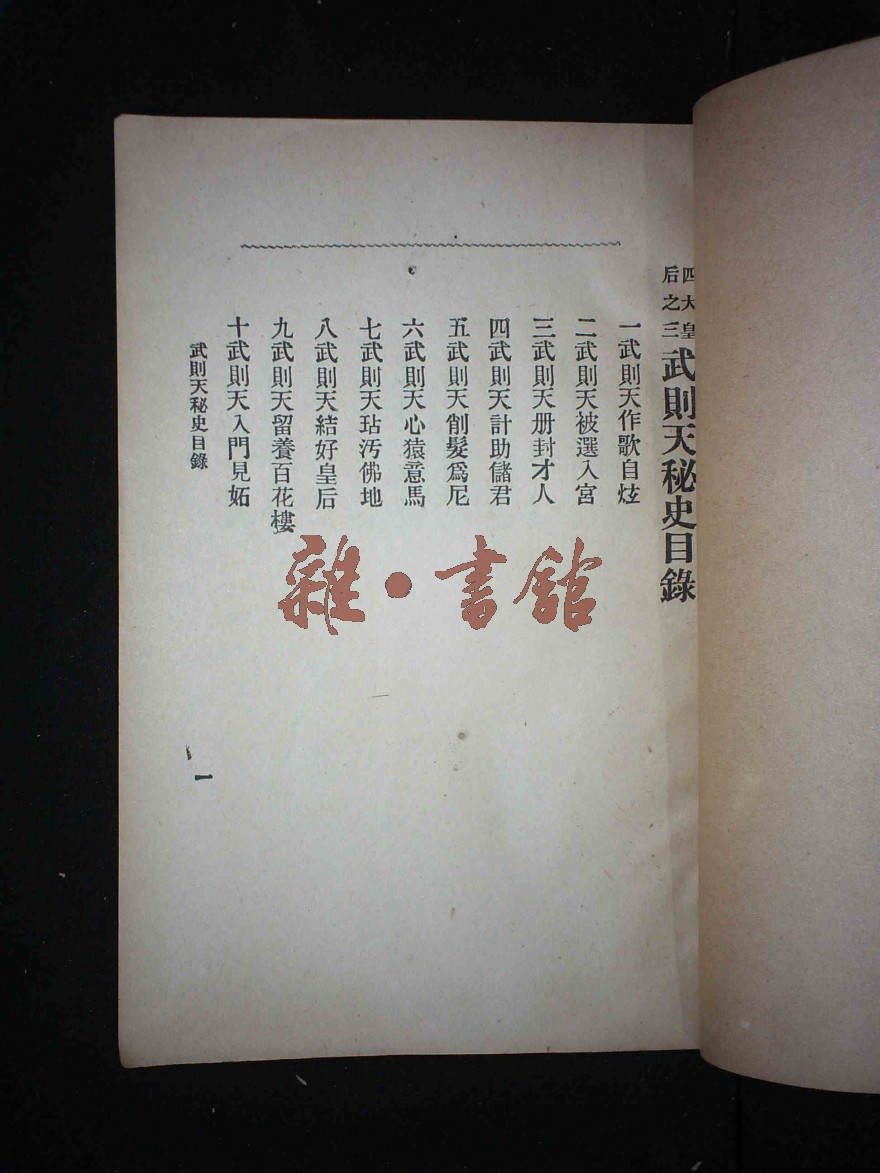 四大皇后之三
武則天秘史目錄
一武則天作歌自炫
二武則天被選入宮
三武則天册封才人
四武則天計助儲君
五武則天削髮爲尼
六武則天心猿意馬
七武則天玷汚佛地
八武則天結好皇后
九武則天留養百花樓
十武則天入門見妬
武則天秘史目錄
一
雜·書館